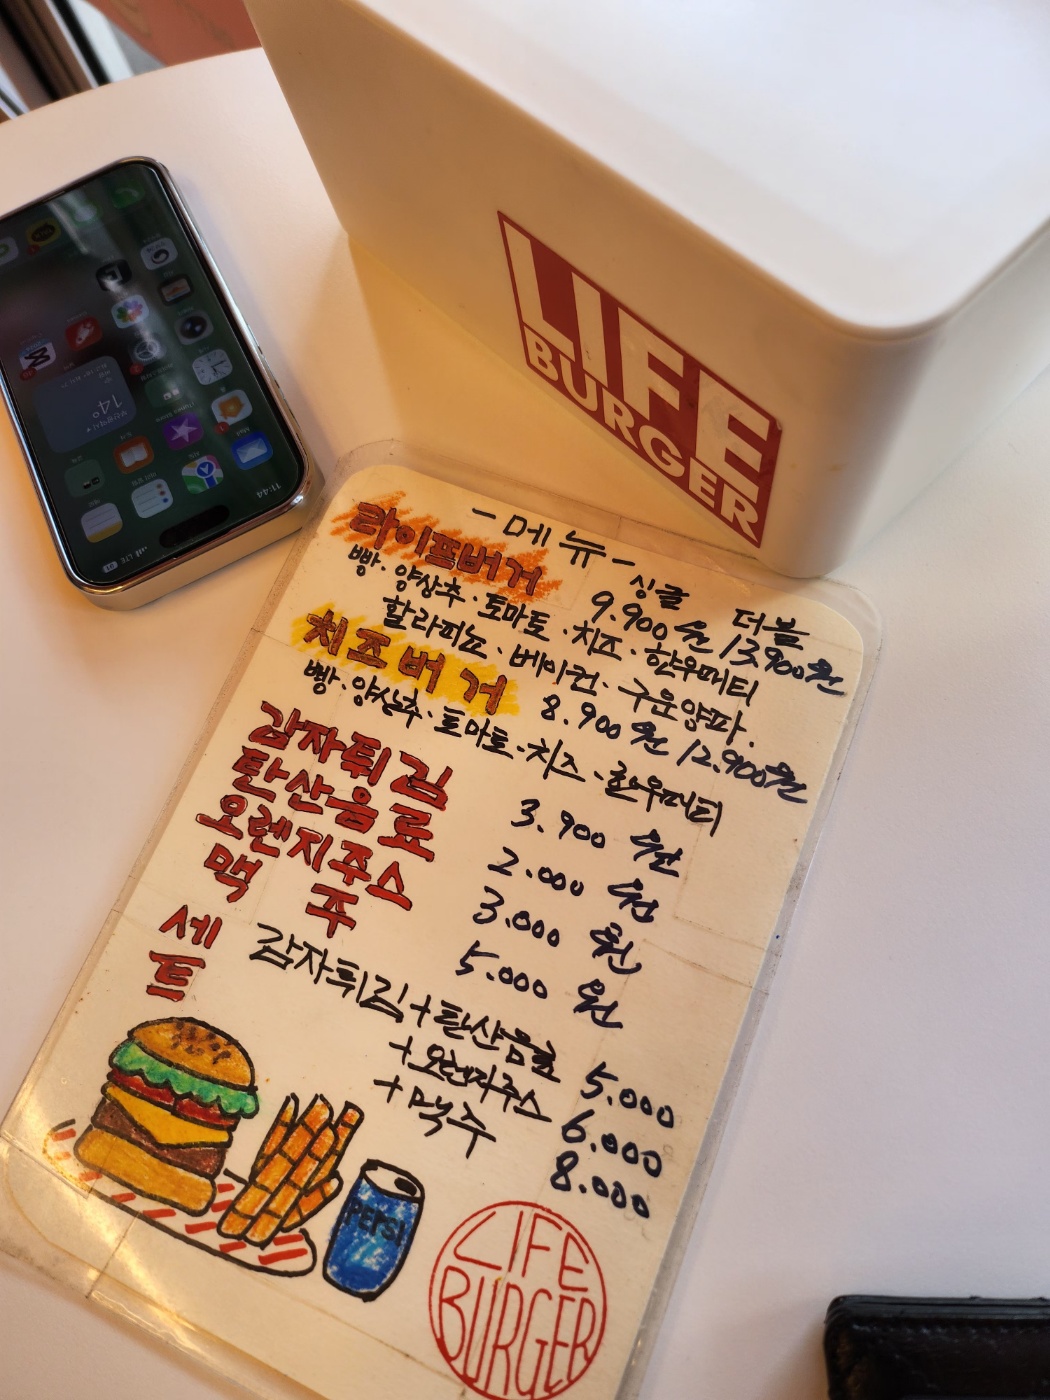 LIFE
BURGER
11:44
LTE
14°
- 메뉴 -
싱글 더블
라이프버거 9.900원 13.900원
빵·양상추·토마토·치즈·한우패티
할라피뇨·베이컨·구운양파.
치즈버거 8.900원 12.900원
빵·양상추·토마토·치즈·한우패티
감자튀김 3.900원
탄산음료 2.000원
오렌지주스 3.000원
맥주 5.000원
세트 감자튀김+탄산음료 5.000
+오렌지주스 6.000
+맥주 8.000
PEPSI
LIFE
BURGER